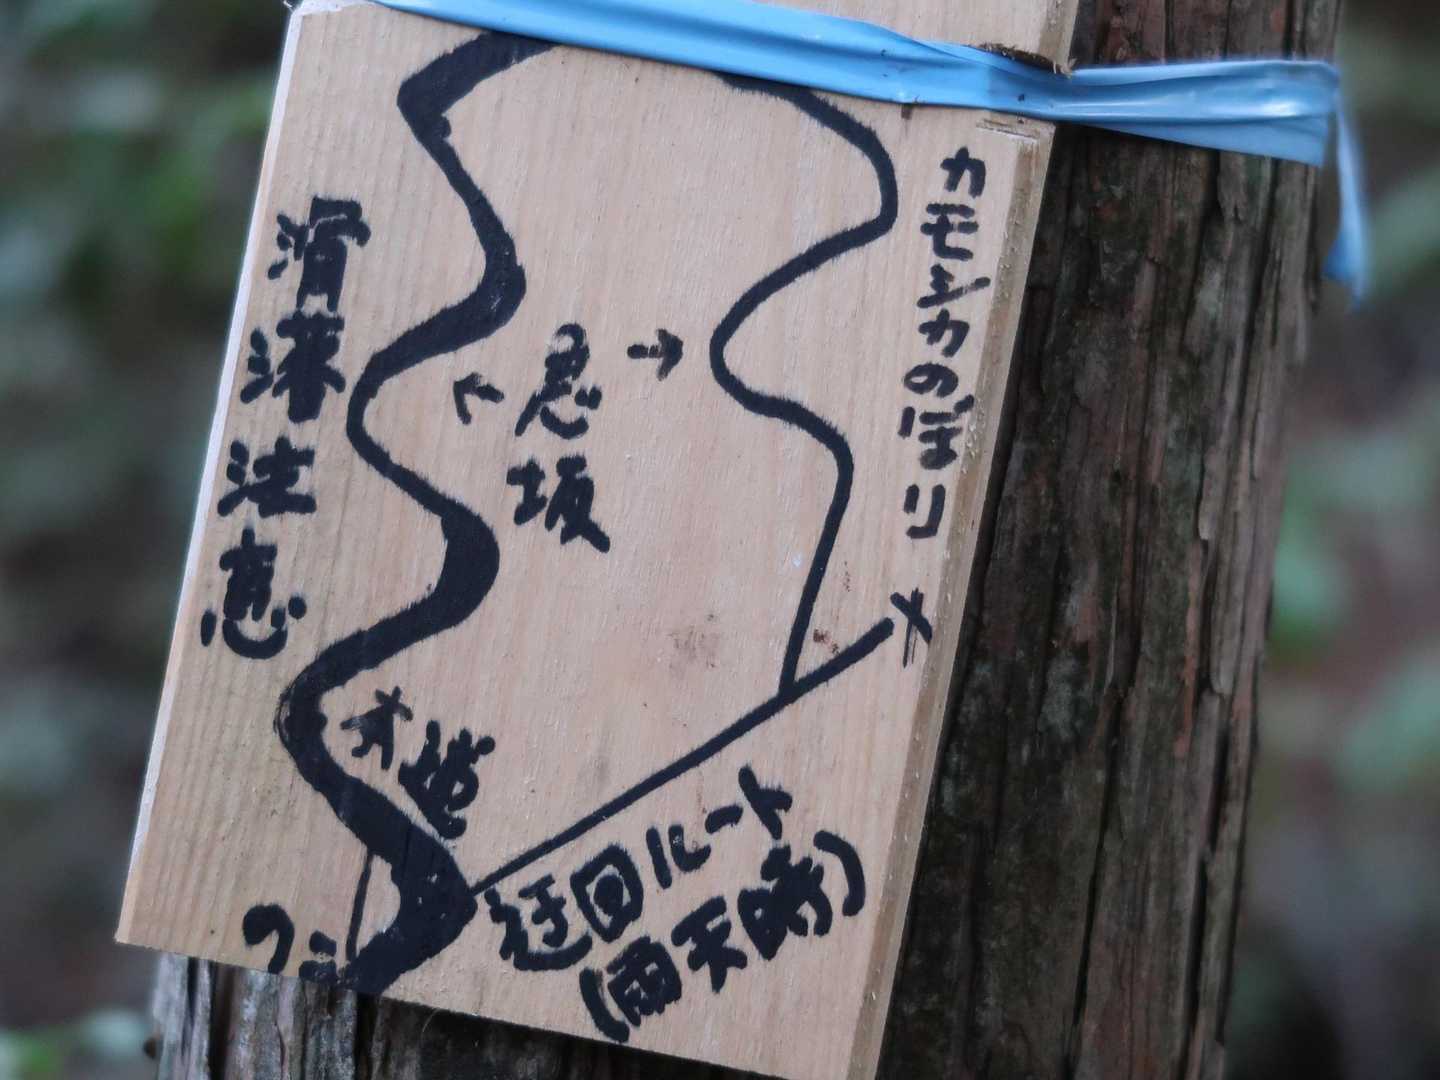 カモシカのぼり
← 急坂 →
滑落注意
迂回ルート
(雨天時)